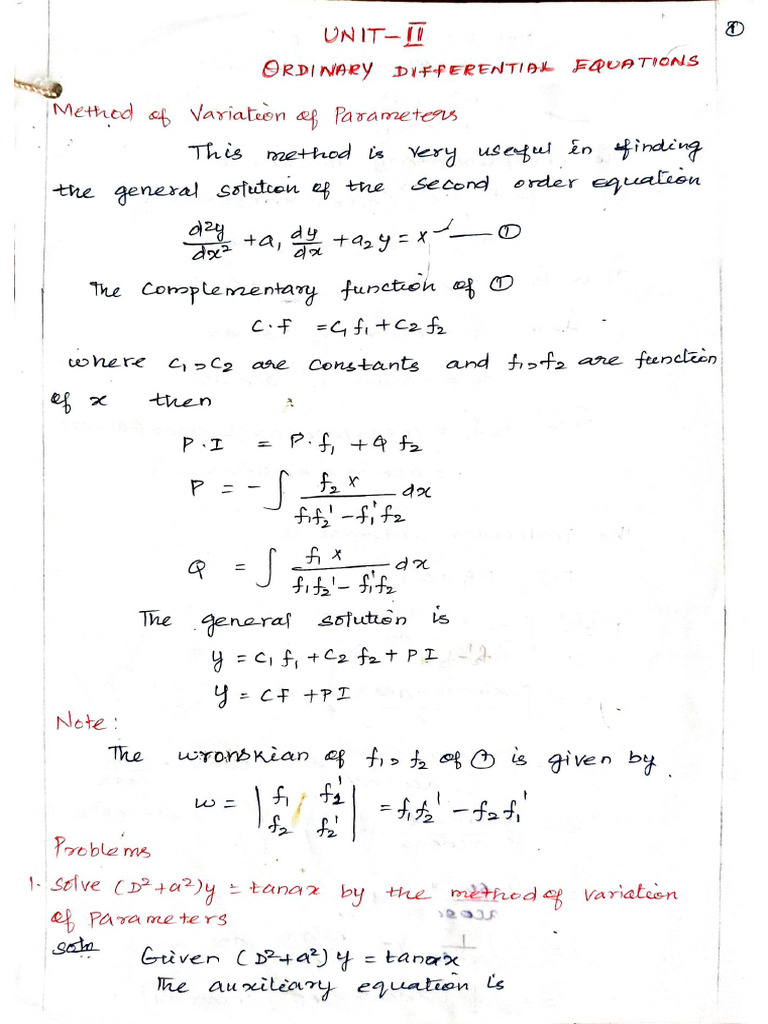 ①
UNIT-II
ORDINARY DIFFERENTIAL EQUATIONS
Method of Variation of Parameters
This method is very useful in finding
the general solution of the second order equation
d2y/dx² + a₁ dy/dx + a₂ y = x — ①
The complementary function of ①
C.F = C₁ f₁ + C₂ f₂
where C₁, C₂ are constants and f₁, f₂ are function
of x then
P.I = P. f₁ + Q f₂
P = - ∫ f₂ x / (f₁f₂' - f₁'f₂) dx
Q = ∫ f₁ x / (f₁f₂' - f₁'f₂) dx
The general solution is
y = C₁ f₁ + C₂ f₂ + P I
y = CF + PI
Note:
The wronskian of f₁, f₂ of ① is given by
w = | f₁ f₁' | = f₁f₂' - f₂f₁'
| f₂ f₂' |
Problems
1. Solve (D²+a²)y = tanax by the method of variation
of Parameters
soln Given (D²+a²) y = tanax
The auxiliary equation is